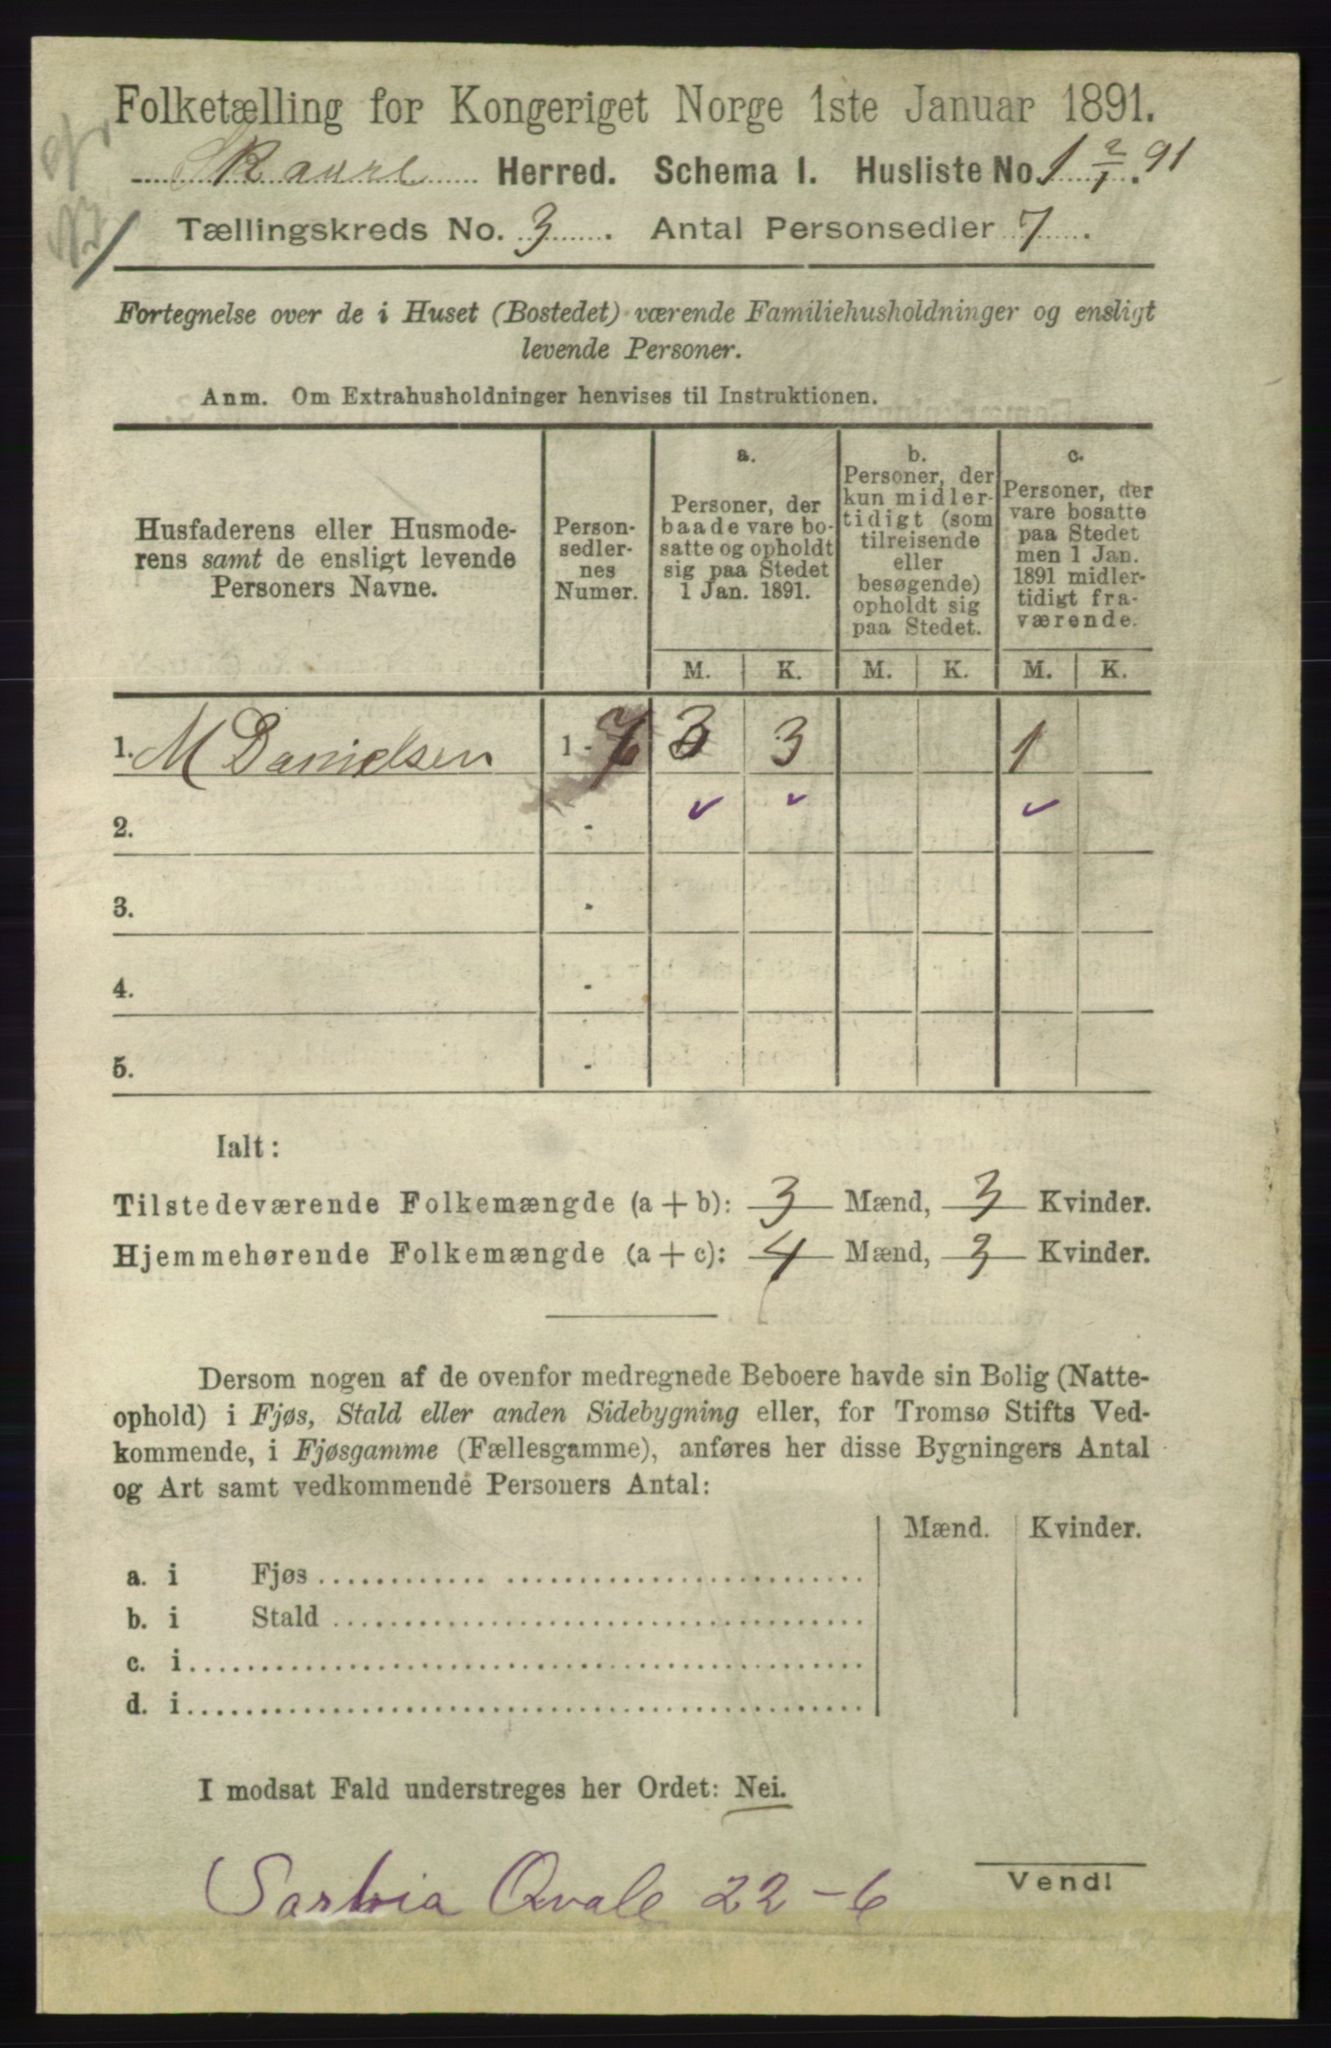 Folketælling for Kongeriget Norge 1ste Januar 1891.
Skaare Herred. Schema I. Husliste No. 1 2/1 91
Tællingskreds No. 3. Antal Personsedler 7.
Fortegnelse over de i Huset (Bostedet) værende Familiehusholdninger og ensligt
levende Personer.
Anm. Om Extrahusholdninger henvises til Instruktionen.
Husfaderens eller Husmode-
rens samt de ensligt levende
Personers Navne.
Person-
sedler-
nes
Numer.
a.
Personer, der
baade vare bo-
satte og opholdt
sig paa Stedet
1 Jan. 1891.
b.
Personer, der
kun midler-
tidigt (som
tilreisende
eller
besøgende)
opholdt sig
paa Stedet.
c.
Personer, der
vare bosatte
paa Stedet
men 1 Jan.
1891 midler-
tidigt fra-
værende.
M. K. M. K. M. K.
1. M Danielsen 1 - 7 3 3 1
2. -
3. -
4. -
5. -
Ialt:
Tilstedeværende Folkemængde (a + b): 3 Mænd, 3 Kvinder.
Hjemmehørende Folkemængde (a + c): 4 Mænd, 3 Kvinder.
Dersom nogen af de ovenfor medregnede Beboere havde sin Bolig (Natte-
ophold) i Fjøs, Stald eller anden Sidebygning eller, for Tromsø Stifts Ved-
kommende, i Fjøsgamme (Fællesgamme), anføres her disse Bygningers Antal
og Art samt vedkommende Personers Antal:
Mænd. Kvinder.
a. i Fjøs
b. i Stald
c. i
d. i
I modsat Fald understreges her Ordet: Nei.
Vend!
Qvale 22-6